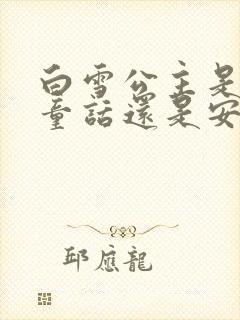 白雪公主是
童話還是安
邱應龍